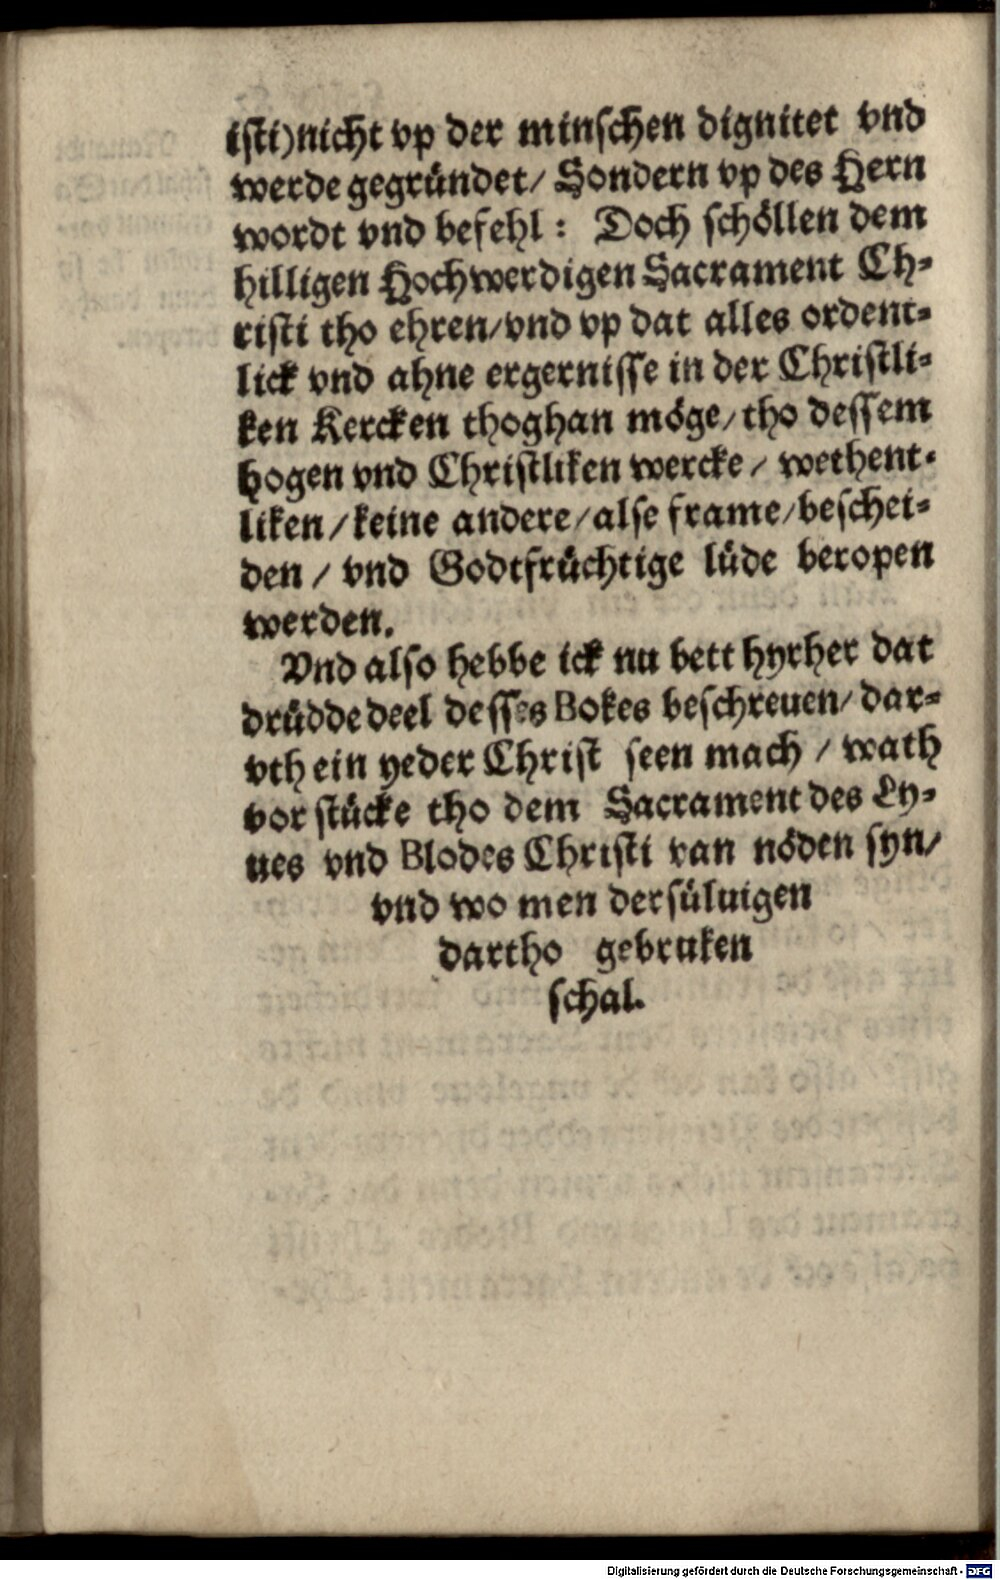 isti) nicht vp der minschen dignitet vnd
werde gegründet/ Sondern vp des Hern
wordt vnd befehl: Doch schöllen dem
hilligen Hochwerdigen Sacrament Ch-
risti tho ehren/vnd vp dat alles ordent-
lick vnd ahne ergernisse in der Christli-
ken Kercken thoghan möge/tho dessem
hogen vnd Christliken wercke/ wethent-
liken/keine andere/alse frame/beschei-
den/ vnd Godtfrüchtige lüde beropen
werden.
Vnd also hebbe ick nu bett hyrher dat
drüdde deel desses Bokes beschreuen/ dar-
vth ein yeder Christ seen mach/ wath
vor stücke tho dem Sacrament des Ly-
ues vnd Blodes Christi van nöden syn/
vnd wo men dersüluigen
dartho gebruken
schal.
Digitalisierung gefördert durch die Deutsche Forschungsgemeinschaft - DFG